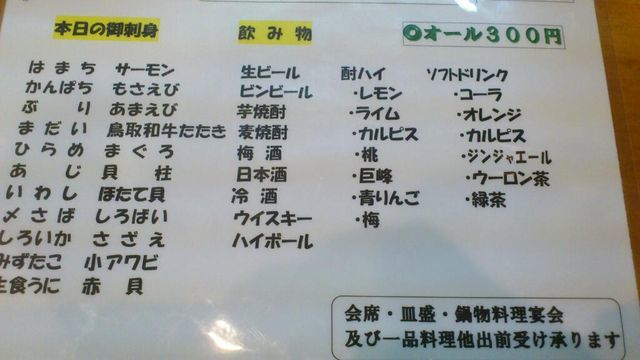 本日の御刺身
はまち サーモン
かんぱち もさえび
ぶり あまえび
まだい 鳥取和牛たたき
ひらめ まぐろ
あじ 貝柱
いわし ほたて貝
〆さば しろばい
しろいか さざえ
みずたこ 小アワビ
生食うに 赤貝
飲み物
生ビール
ビンビール
芋焼酎
麦焼酎
梅酒
日本酒
冷酒
ウイスキー
ハイボール
◎オール３００円
酎ハイ
・レモン
・ライム
・カルピス
・桃
・巨峰
・青りんご
・梅
ソフトドリンク
・コーラ
・オレンジ
・カルピス
・ジンジャエール
・ウーロン茶
・緑茶
会席・皿盛・鍋物料理宴会
及び一品料理他出前受け承ります